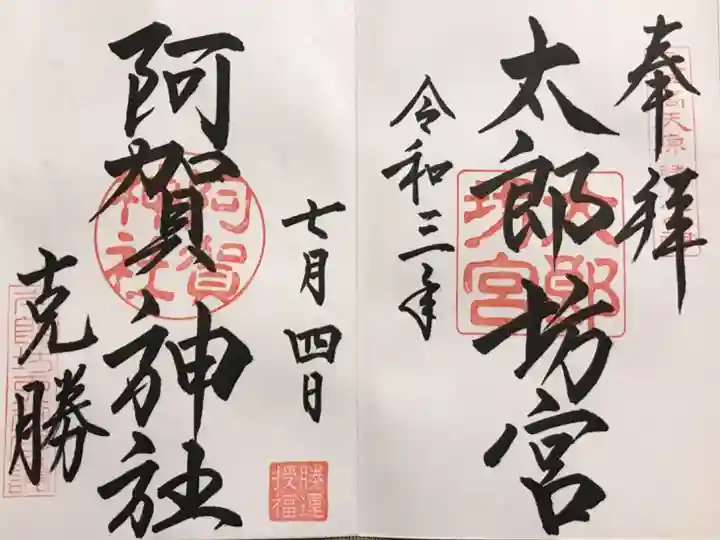 奉拝
太郎坊宮
令和三年
七月四日
阿賀神社
克勝
太郎坊宮
阿賀神社
勝運授福